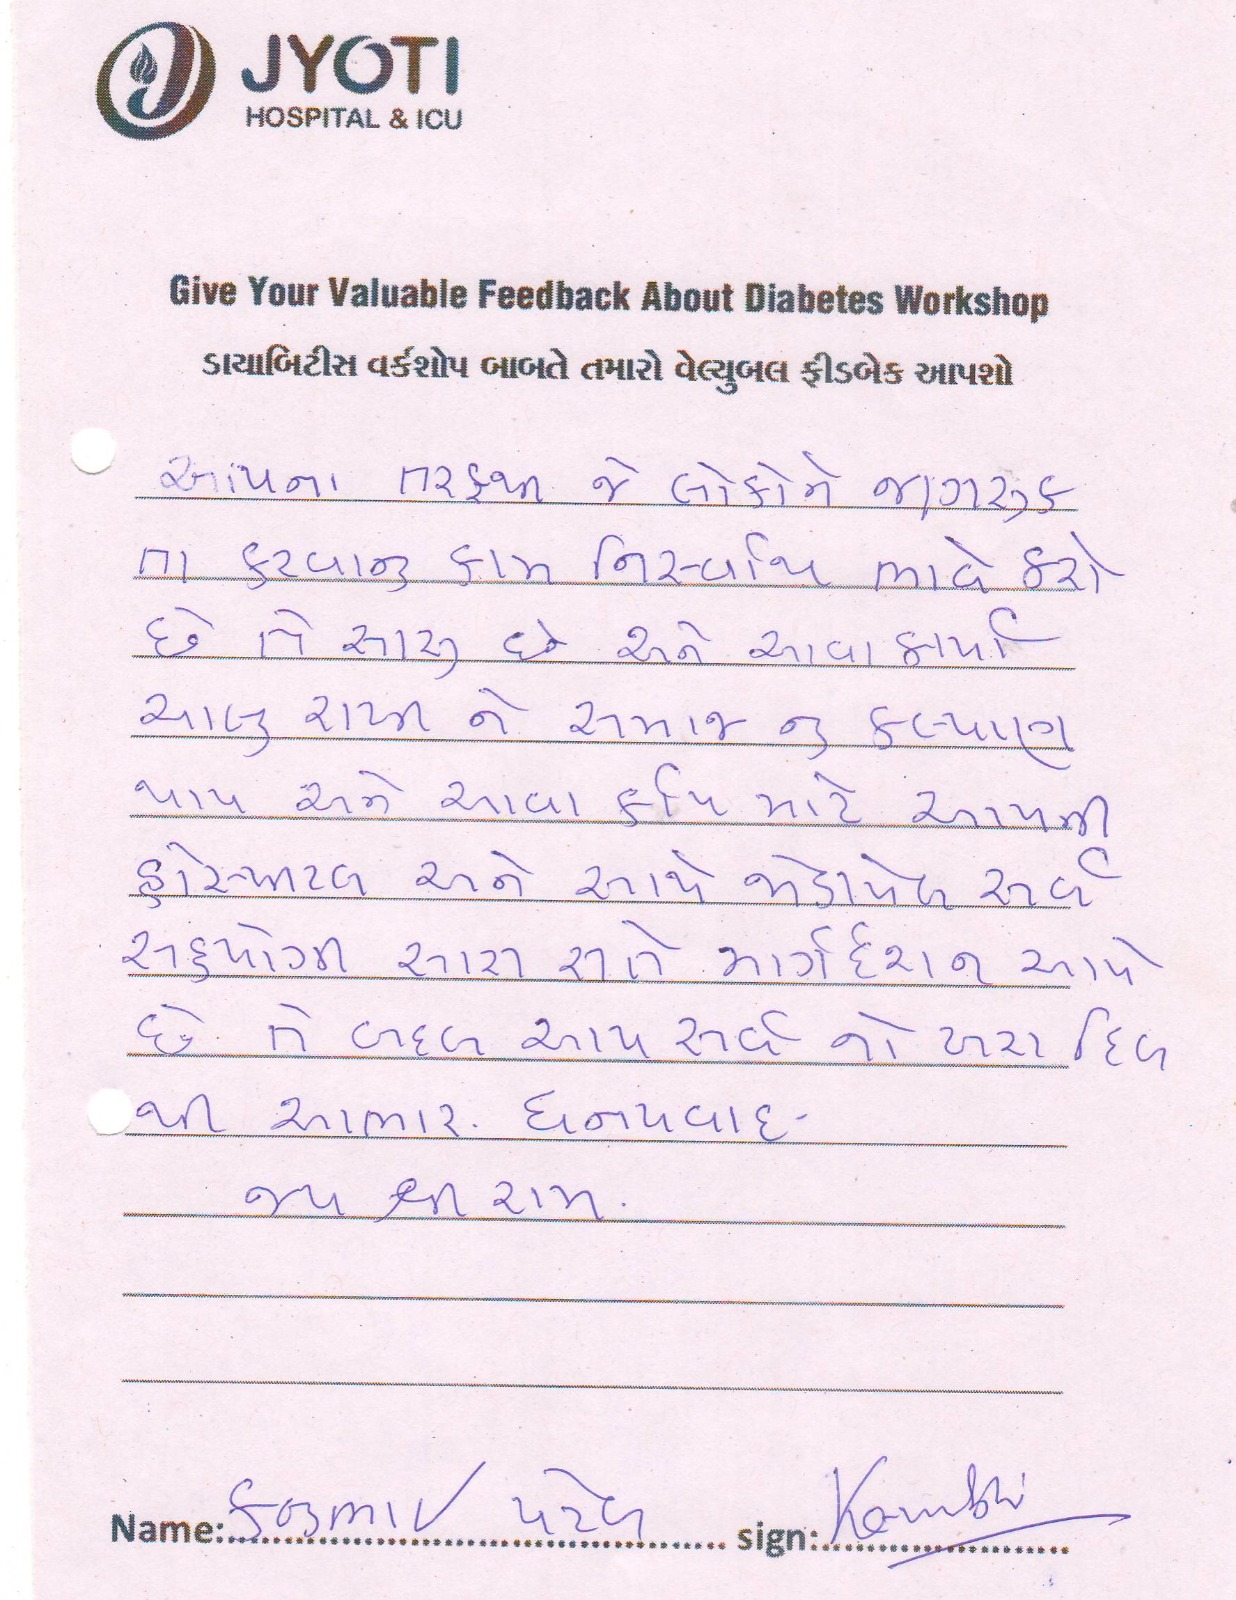 JYOTI
HOSPITAL & ICU
Give Your Valuable Feedback About Diabetes Workshop
ડાયાબિટીસ વર્કશોપ બાબતે તમારો વેલ્યુબલ ફીડબેક આપશો
આપના તરફથી જે લોકોને જાગરૂક
તા કરવાનુ કામ નિસ્વાર્થ ભાવે કરો
છે તે સારૂ છે અને આવા કાર્યો
ચાલુ રાખી ને સમાજ નુ કલ્યાણ
થાય અને આવા કાર્ય માટે આપની
હોસ્પીટલ અને આપે જોડાયેલ સર્વ
સહયોગી સારી રીતે માર્ગદર્શન આપે
છે તે બદલ આપ સર્વ નો ખરા દિલ
થી આભાર. ધન્યવાદ-
જય શ્રી રામ.
Name: કનુભાઈ પટેલ sign: